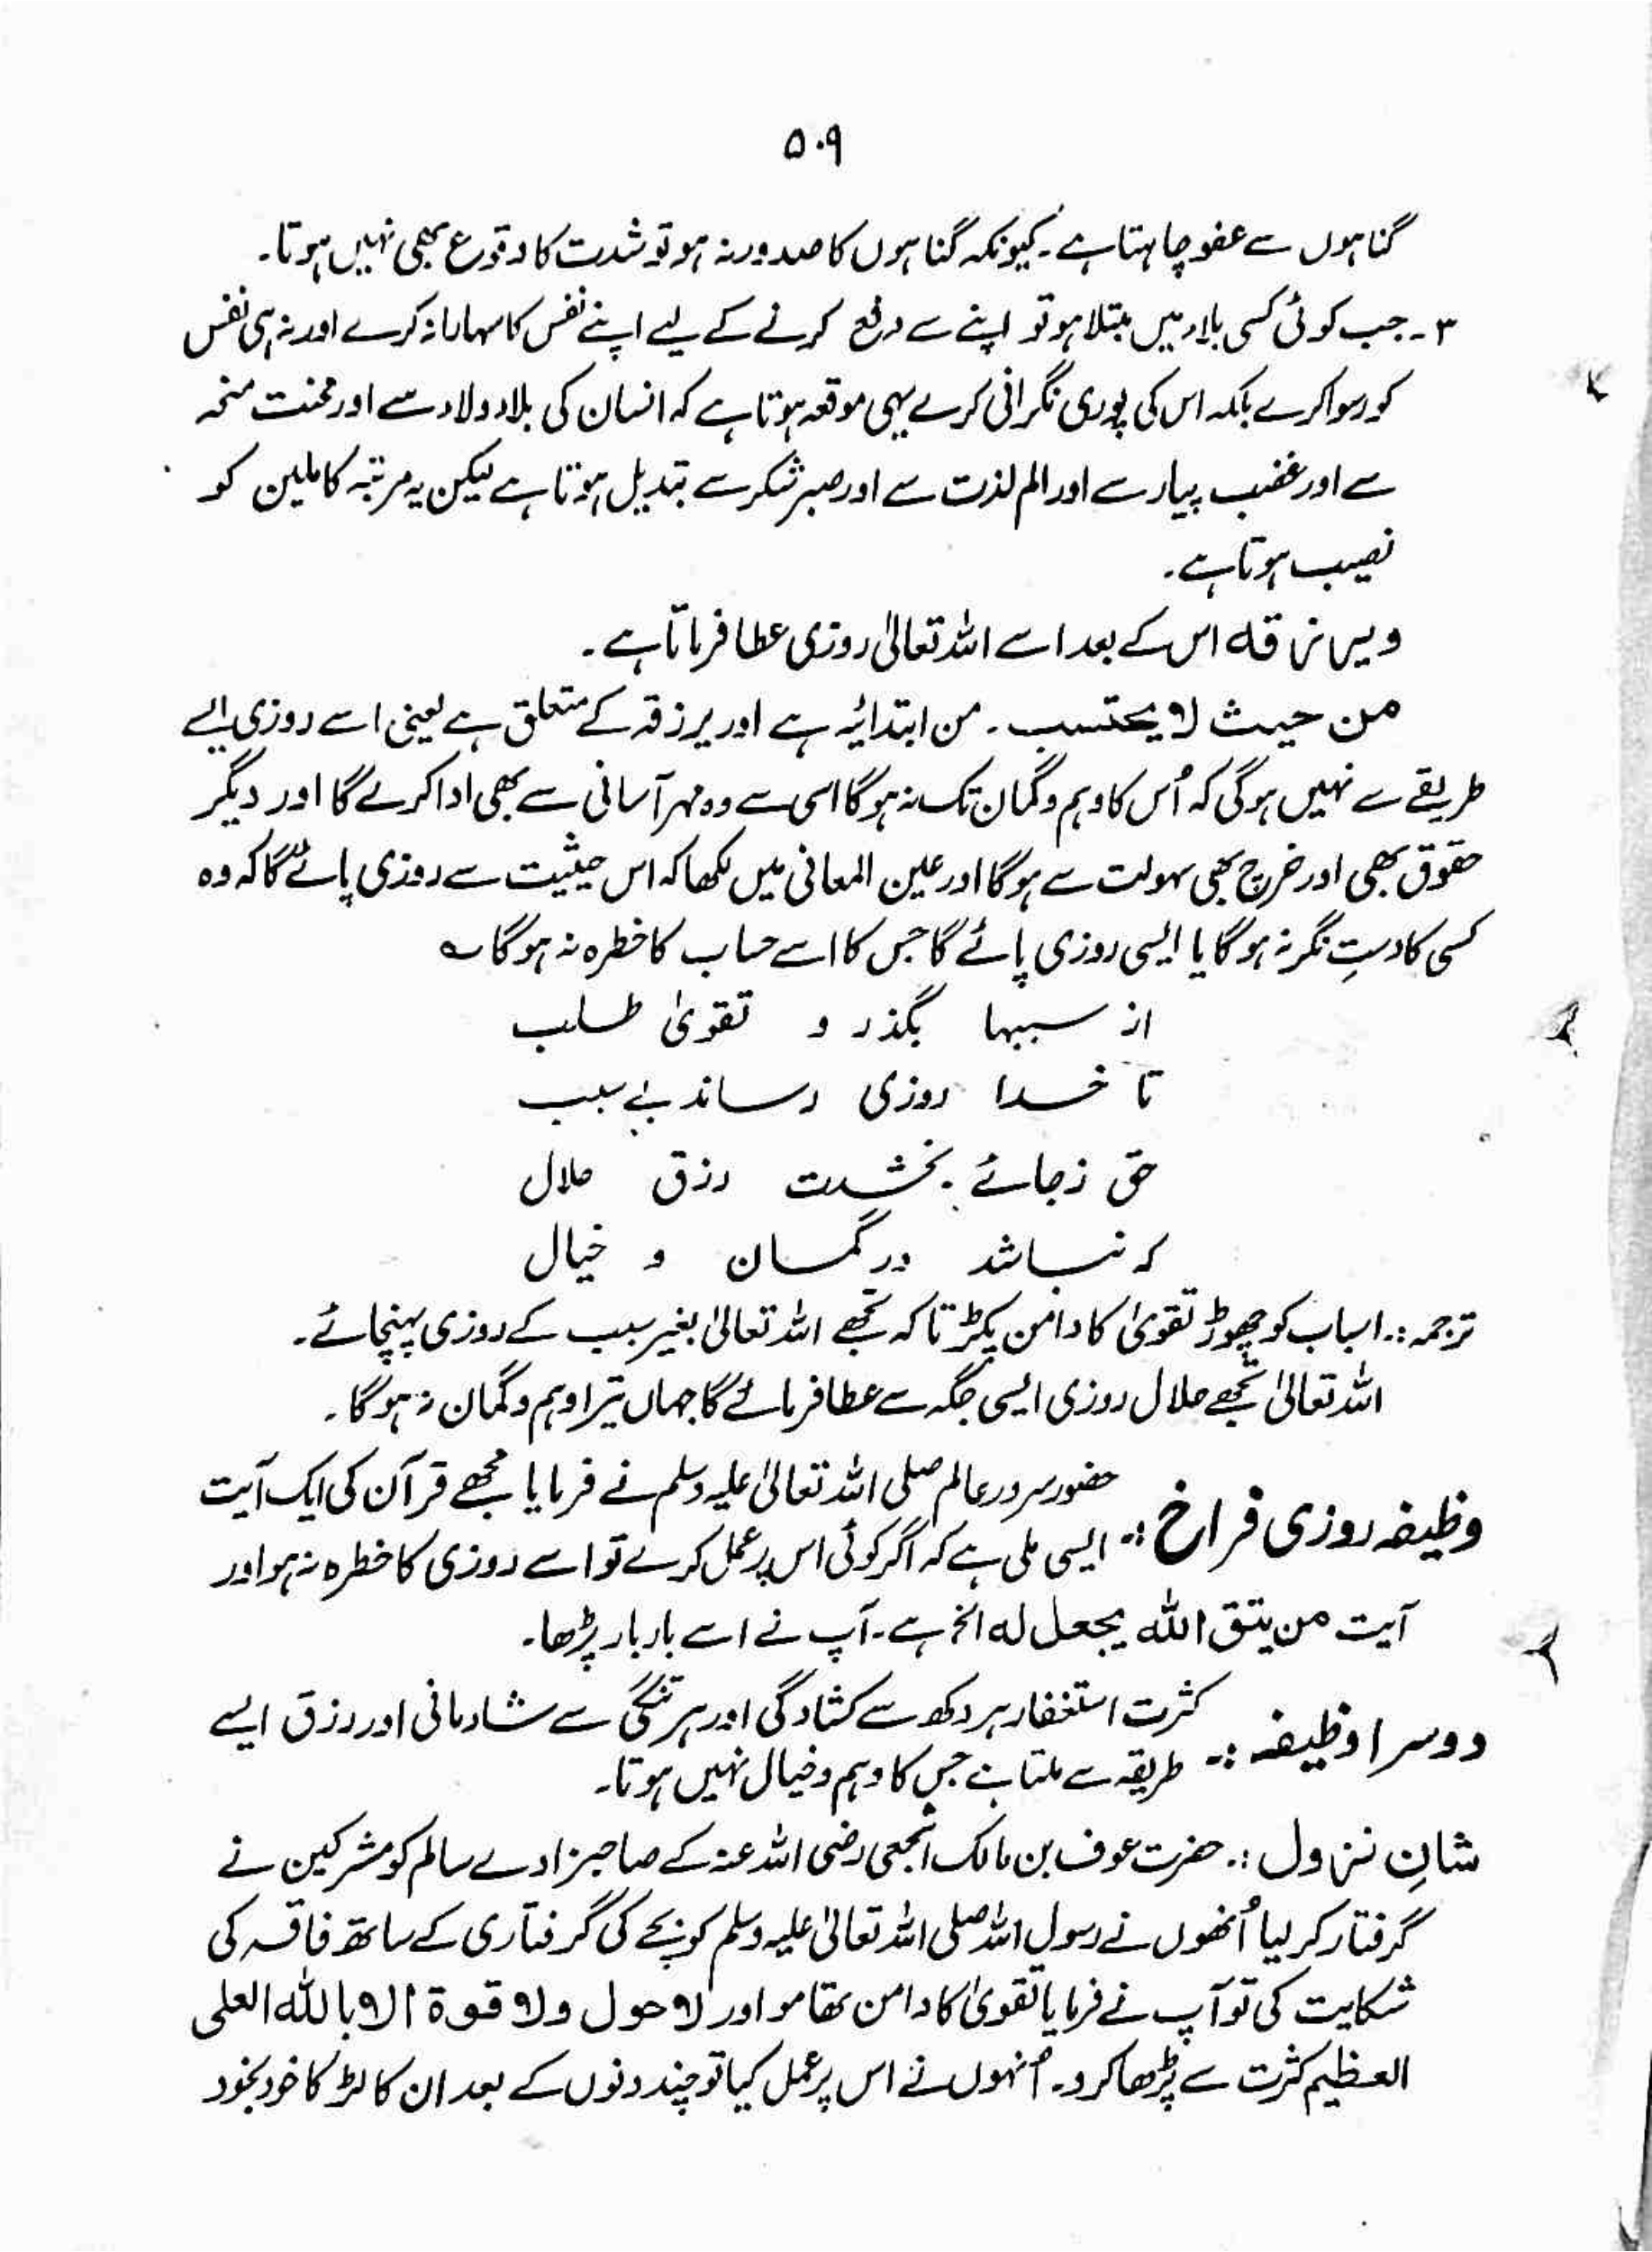 ۵۰۹
گناہوں سے عفو چاہتا ہے۔ کیونکہ گناہوں کا صدور نہ ہو تو شدت کا وقوع بھی نہیں ہوتا۔
۳۔ جب کوئی کسی بلاء میں مبتلا ہو تو اپنے سے دفع کرنے کے لیے اپنے نفس کا سہارا نہ کرے اور نہ ہی نفس
کو رسوا کرے بلکہ اس کی پوری نگرانی کرے یہی موقعہ ہوتا ہے کہ انسان کی بلاء ولاء سے اور محنت منحہ
سے اور غضب پیار سے اور الم لذت سے اور صبر شکر سے تبدیل ہوتا ہے لیکن یہ مرتبہ کاملین کو
نصیب ہوتا ہے۔
ویرزقه اس کے بعد اسے اللہ تعالیٰ روزی عطا فرماتا ہے۔
من حیث لا یحتسب۔ من ابتدائیہ ہے اور یرزقہ کے متعلق ہے یعنی اسے روزی ایسے
طریقے سے نہیں ہوگی کہ اُس کا وہم و گمان تک نہ ہوگا اسی سے وہ مہر آسانی سے بھی ادا کرے گا اور دیگر
حقوق بھی اور خرچ بھی سہولت سے ہوگا اور عین المعانی میں لکھا کہ اس حیثیت سے روزی پائے گا کہ وہ
کسی کا دستِ نگر نہ ہوگا یا ایسی روزی پائے گا جس کا اسے حساب کا خطرہ نہ ہوگا ؎
از سببہا بگذر و تقویٰ طلب
تا خدا روزی رساند بے سبب
حق زجائے بخشدت رزق حلال
کہ نباشد در گمان و خیال
ترجمہ:۔ اسباب کو چھوڑ تقویٰ کا دامن پکڑ تا کہ تجھے اللہ تعالیٰ بغیر سبب کے روزی پہنچائے۔
اللہ تعالیٰ تجھے حلال روزی ایسی جگہ سے عطا فرمائے گا جہاں تیرا وہم و گمان نہ ہوگا۔
وظیفہ روزی فراخ :۔ حضور سرور عالم صلی اللہ تعالیٰ علیہ وسلم نے فرمایا مجھے قرآن کی ایک آیت
ایسی ملی ہے کہ اگر کوئی اس پر عمل کرے تو اسے روزی کا خطرہ نہ ہو اور
آیت من یتق الله یجعل له الخ ہے۔ آپ نے اسے بار بار پڑھا۔
دوسرا وظیفہ :۔ کثرت استغفار ہر دکھ سے کشادگی اور ہر تنگی سے شادمانی اور رزق ایسے
طریقہ سے ملتا ہے جس کا وہم و خیال نہیں ہوتا۔
شانِ نزول :۔ حضرت عوف بن مالک اشجعی رضی اللہ عنہ کے صاحبزادے سالم کو مشرکین نے
گرفتار کر لیا اُنھوں نے رسول اللہ صلی اللہ تعالیٰ علیہ وسلم کو بچے کی گرفتاری کے ساتھ فاقہ کی
شکایت کی تو آپ نے فرمایا تقویٰ کا دامن تھامو اور لا حول ولا قوة الا بالله العلی
العظیم کثرت سے پڑھا کرو۔ اُنہوں نے اس پر عمل کیا تو چند دنوں کے بعد ان کا لڑکا خود بخود